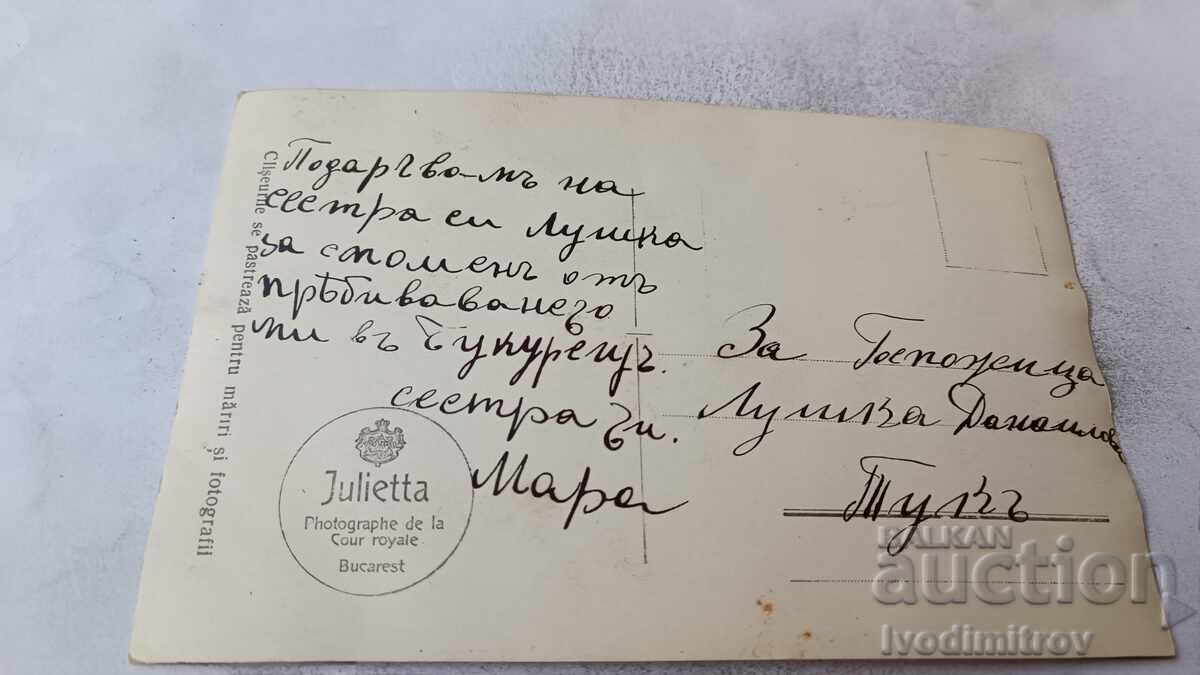 Подарѣвамъ на
сестра си Лушка
за споменъ отъ
прѣбиваванего
ми въ Букурещъ.
сестра ѣи.
Мара
За Госпожица
Лушка Данаилова
Тукъ
Julietta
Photographe de la
Cour royale
Bucarest
Clișeurile se păstrează pentru măriri și fotografii
BALKAN
auction
Ivodimitrov